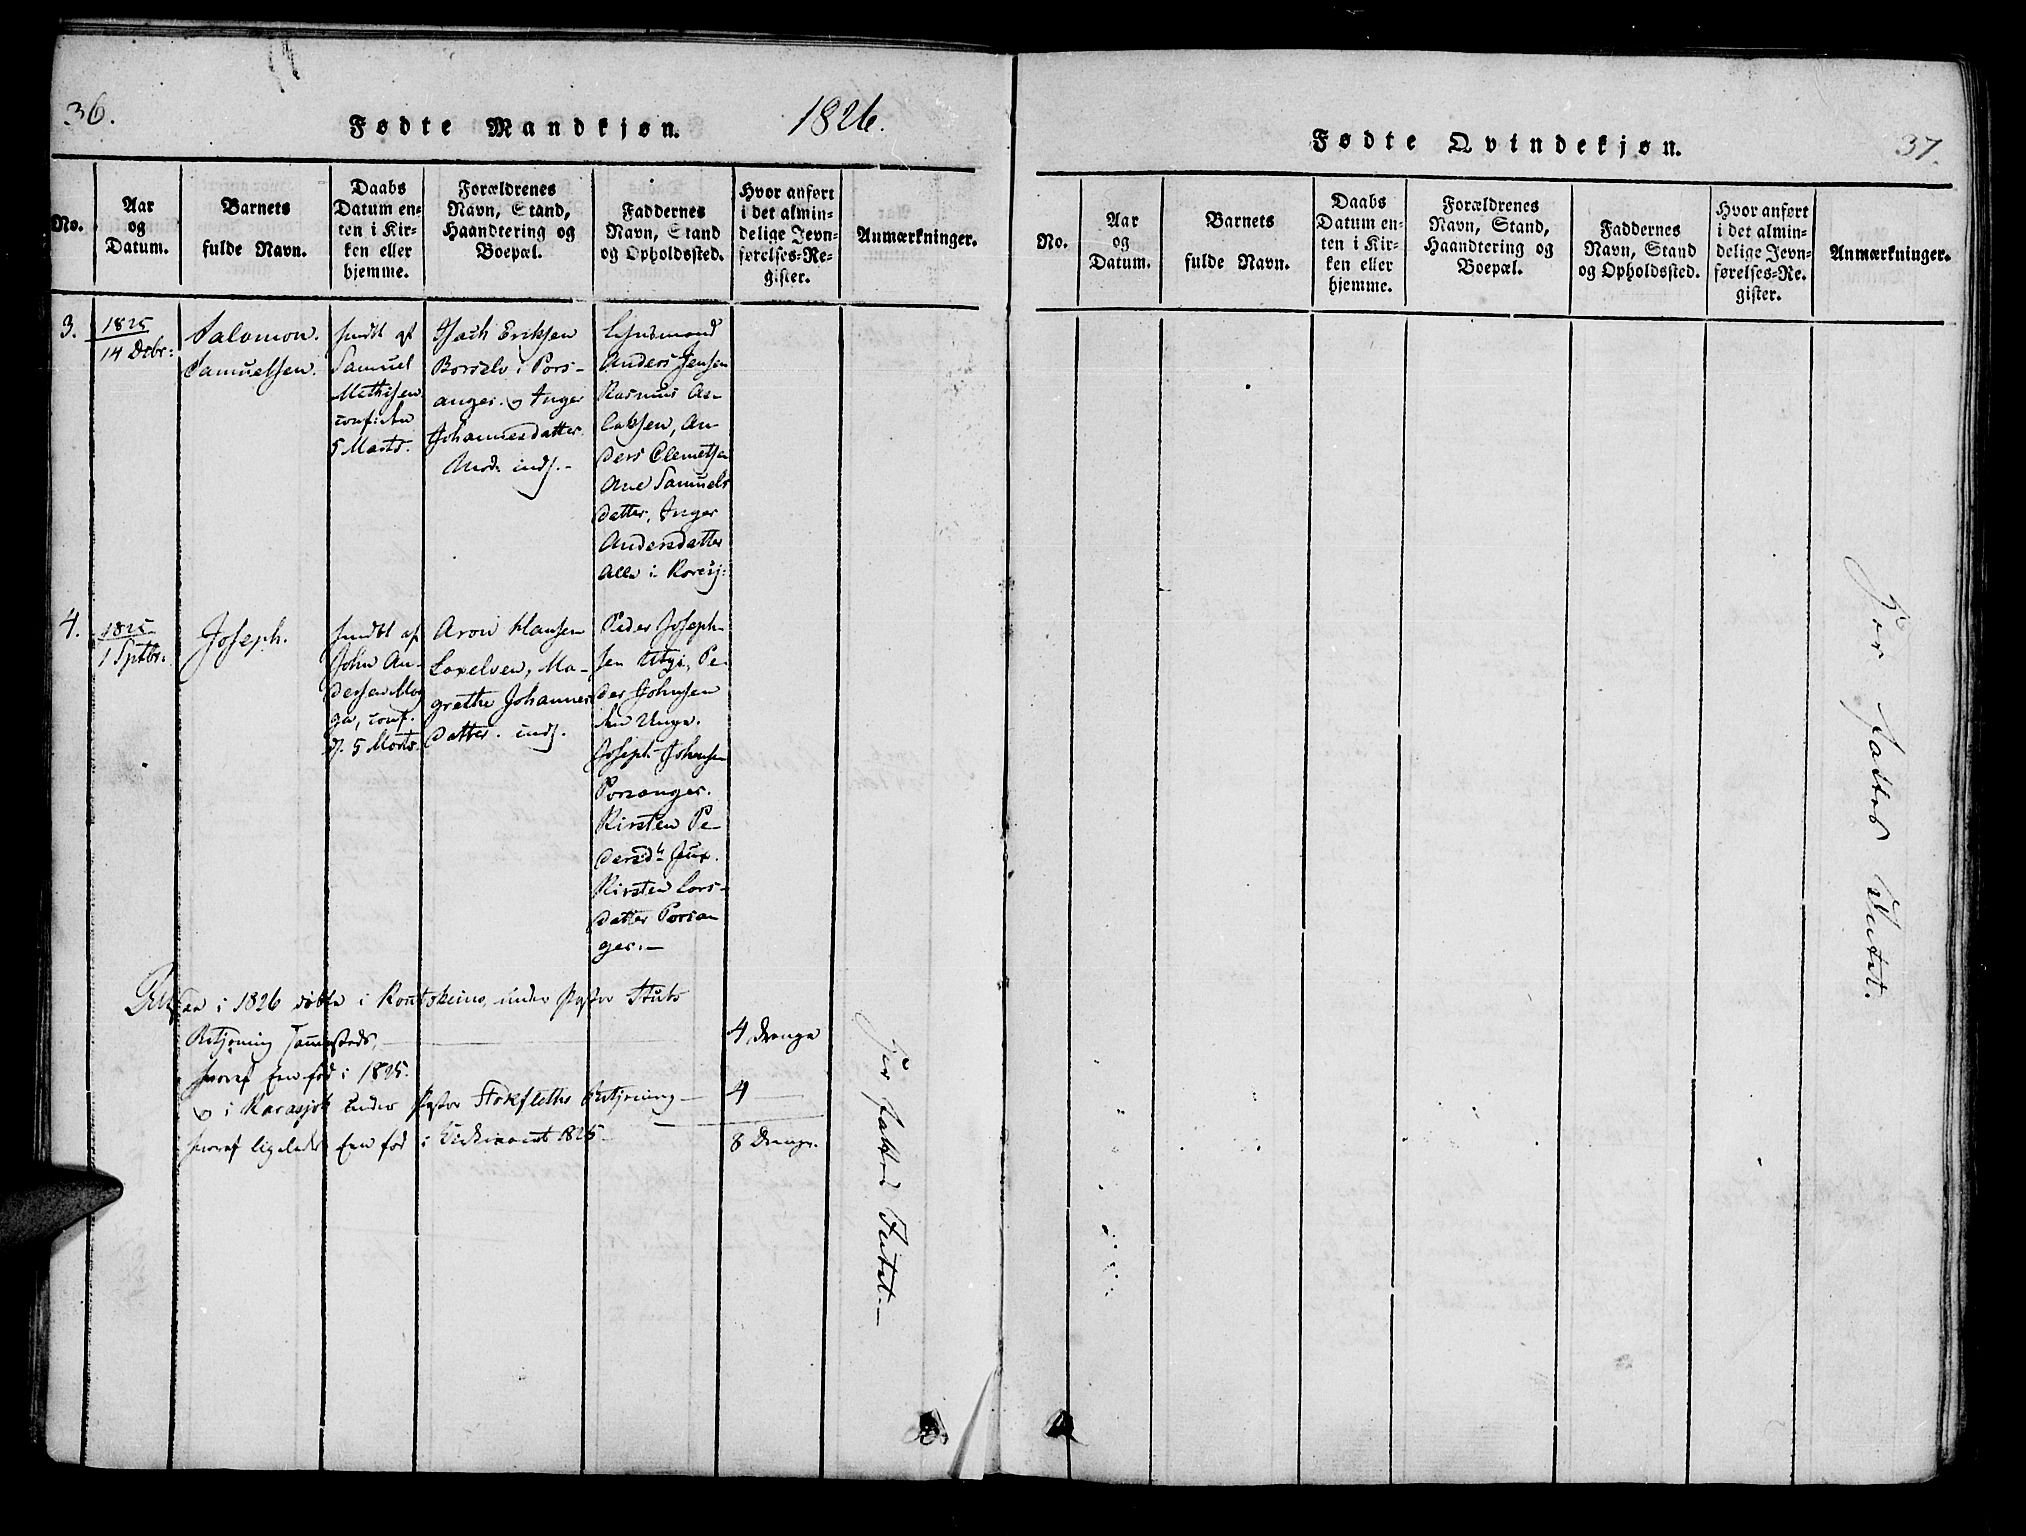 36.
Fødte Mandkjøn. 1826.
No.
Aar
og
Datum.
Barnets
fulde Navn.
Daabs
Datum en-
ten i Kir-
ken eller
hjemme.
Forældrenes
Navn, Stand,
Haandtering og
Boepæl.
Faddernes
Navn, Stand
og Opholdssted.
Hvor anført
i det almin-
delige Jevn-
førelses-Re-
gister.
Anmærkninger.
3.
1825
14 Decbr:
Salomon.
Samuelsen.
hmdt af
Samuel
Mathisen
5 Marts.
Isach Eriksen
Børselv i Pors-
anger. og Inger
Johannesdatter.
indf.
Lensmand
Anders Jensen
Rasmus As-
laksen, An-
ders Clemetsen
Ane Samuels
datter, Inger
Andersdatter
Alle i
4.
1825
1 Sptbr.
Joseph.
hmdt af
John An-
dersen
conf.
d. 5 Marts.
Aron Hansen
Laxelven, Ma-
grethe Johannes
datter. indf.
Peder Joseph-
sen Utzi, Pe-
der Johnsen
den Unge.
Joseph Johnsen
Porsanger.
Kirsten Pe-
dersdtr
Kirsten Lars-
datter Porsan
ger.-
i 1826 døbte i Koutokeino, under Pastor
Betjening sammesteds,
4 Drenge
hvoraf Een fød i 1825.
og i Karasjok under Pastor Stokfleths Betjening-
4
hvoraf ligeledes Een fød i 1825.
8 Drenge.
Her fattes Intet.-
Fødte Qvindekjøn. 37.
No.
Aar
og
Datum.
Barnets
fulde Navn.
Daabs
Datum en-
ten i Kir-
ken eller
hjemme.
Forældrenes
Navn, Stand,
Haandtering og
Boepæl.
Faddernes
Navn, Stand
og Opholdssted.
Hvor anført
i det almin-
delige Jevn-
førelses-Re-
gister.
Anmærkninger.
Her fattes Intet.